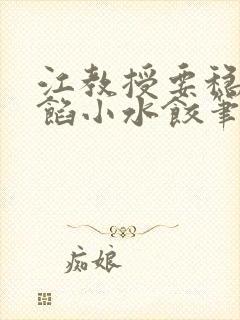 江教授要稳
馅小水饺笔
痴娘